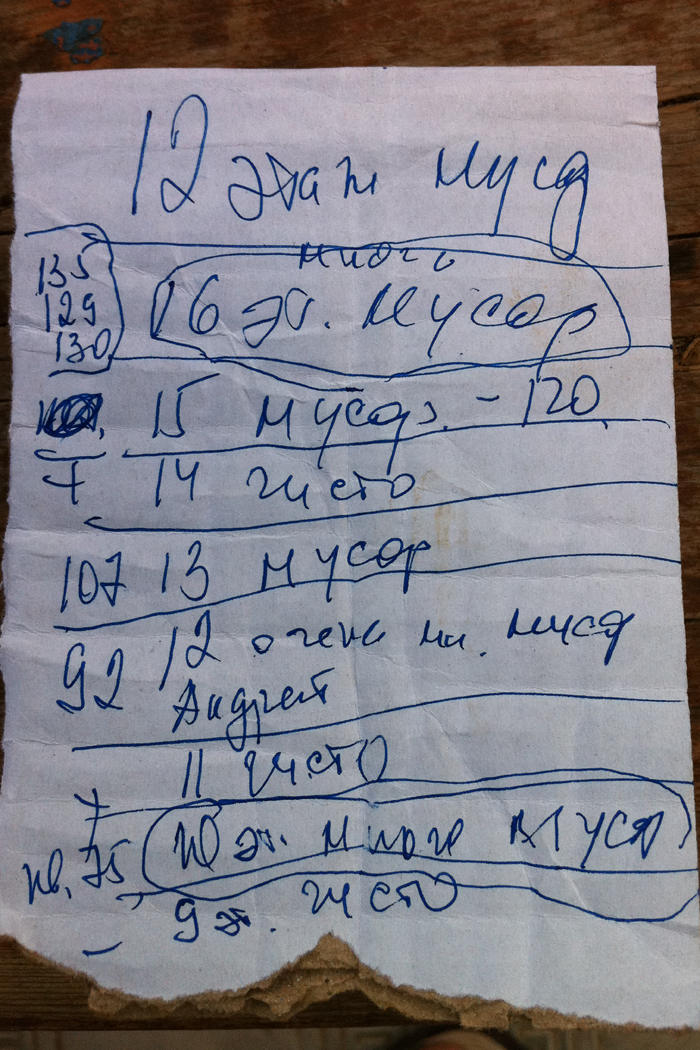 12 этаж мусор
135
129
130
много
16 эт. мусор
15 мусор. - 120
+ 14 чисто
107 13 мусор
92 12 очень мн. мусор
Андрей
+ 11 чисто
кв. 75 10 эт. много мусор
- 9 эт. чисто